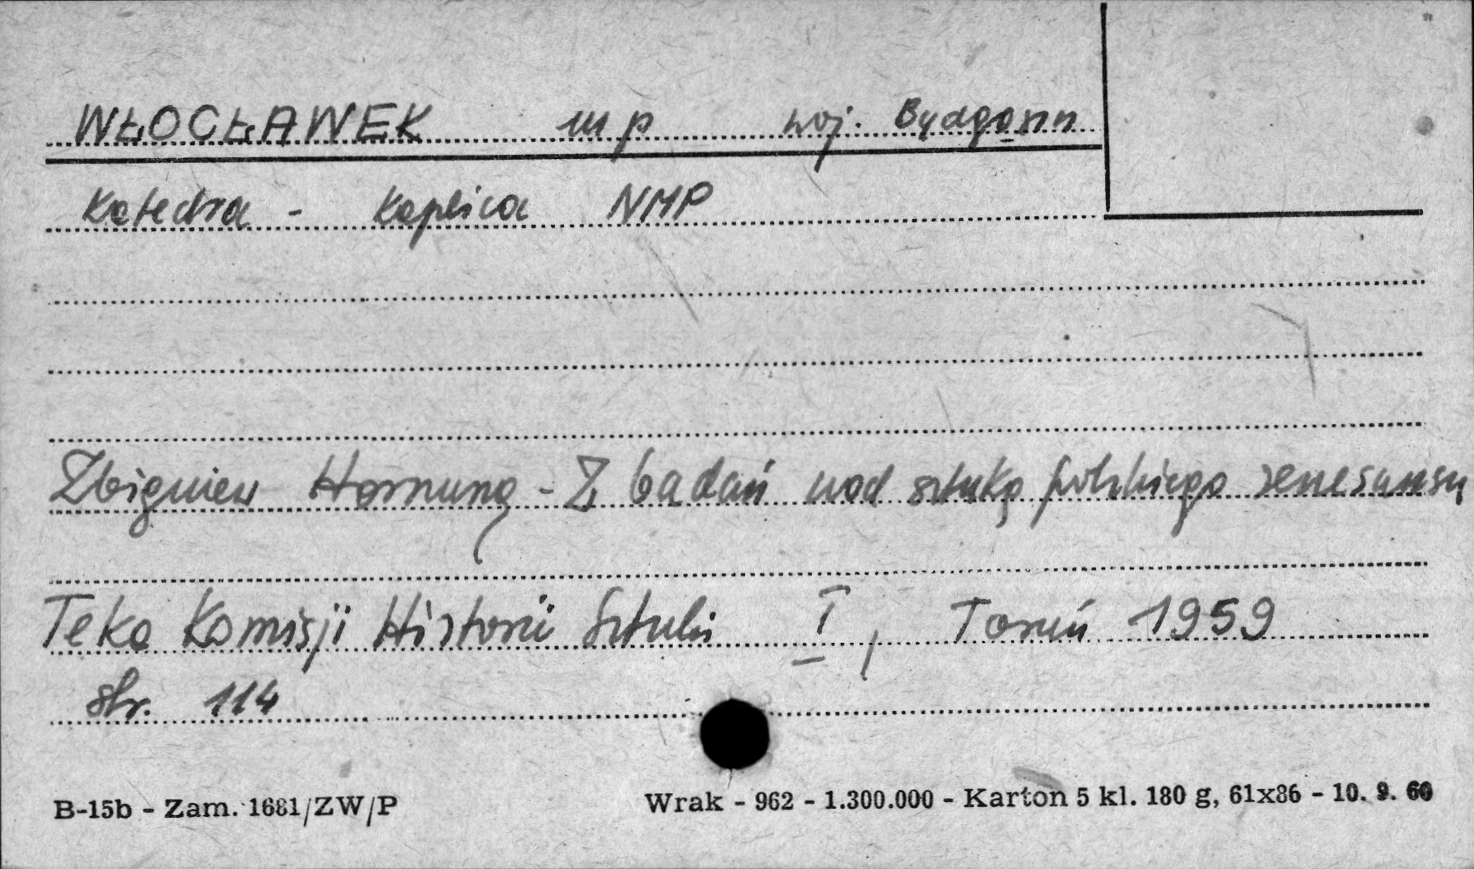 WŁOCŁAWEK m p woj. Bydgoszcz
Katedra - Kaplica NMP
Zbigniew Hornung - Z badań nad sztuką polskiego renesansu
Teka Komisji Historii Sztuki I, Toruń 1959
str. 114
B-15b - Zam. 1681/ZW/P
Wrak - 962 - 1.300.000 - Karton 5 kl. 180 g, 61x86 - 10. 9. 60